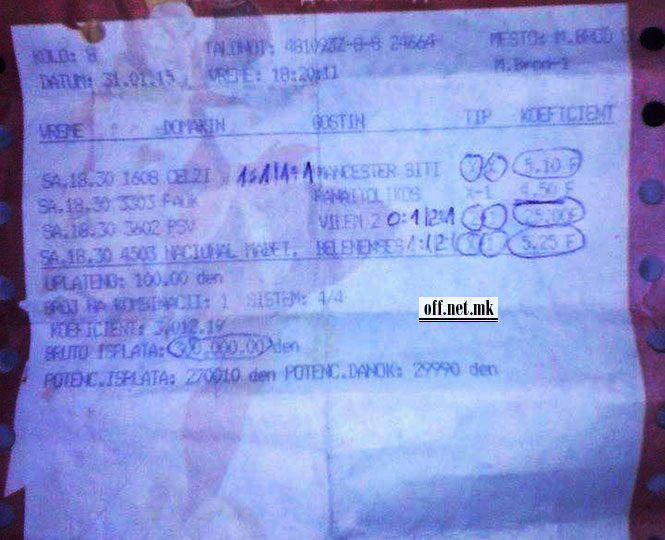 KOLO: 8 TALONOT: 481093Z-8-8 24664 MESTO: M.BROD
DATUM: 31.01.15 VREME: 18:20:11 M.Brod-1
VREME DOMAKIN GOSTIN TIP KOEFICIENT
SA.18.30 1608 CELZI 1:1/1:1 MANCESTER SITI X-X 5.10 F
SA.18.30 3303 PAOK PANAITOLIKOS X-1 4.50 F
SA.18.30 3602 PSV VILEM 2 0:1/2:1 2-1 25.00F
SA.18.30 4503 NACIONAL MADEI. BELENENSES 1:1/2:1 X-1 5.25 F
UPLATENO: 100.00 den
BROJ NA KOMBINACII: 1 SISTEM: 4/4
KOEFICIENT: 3,012.19
BRUTO ISPLATA: 300,000.00 den
POTENC.ISPLATA: 270010 den POTENC.DANOK: 29990 den
off.net.mk